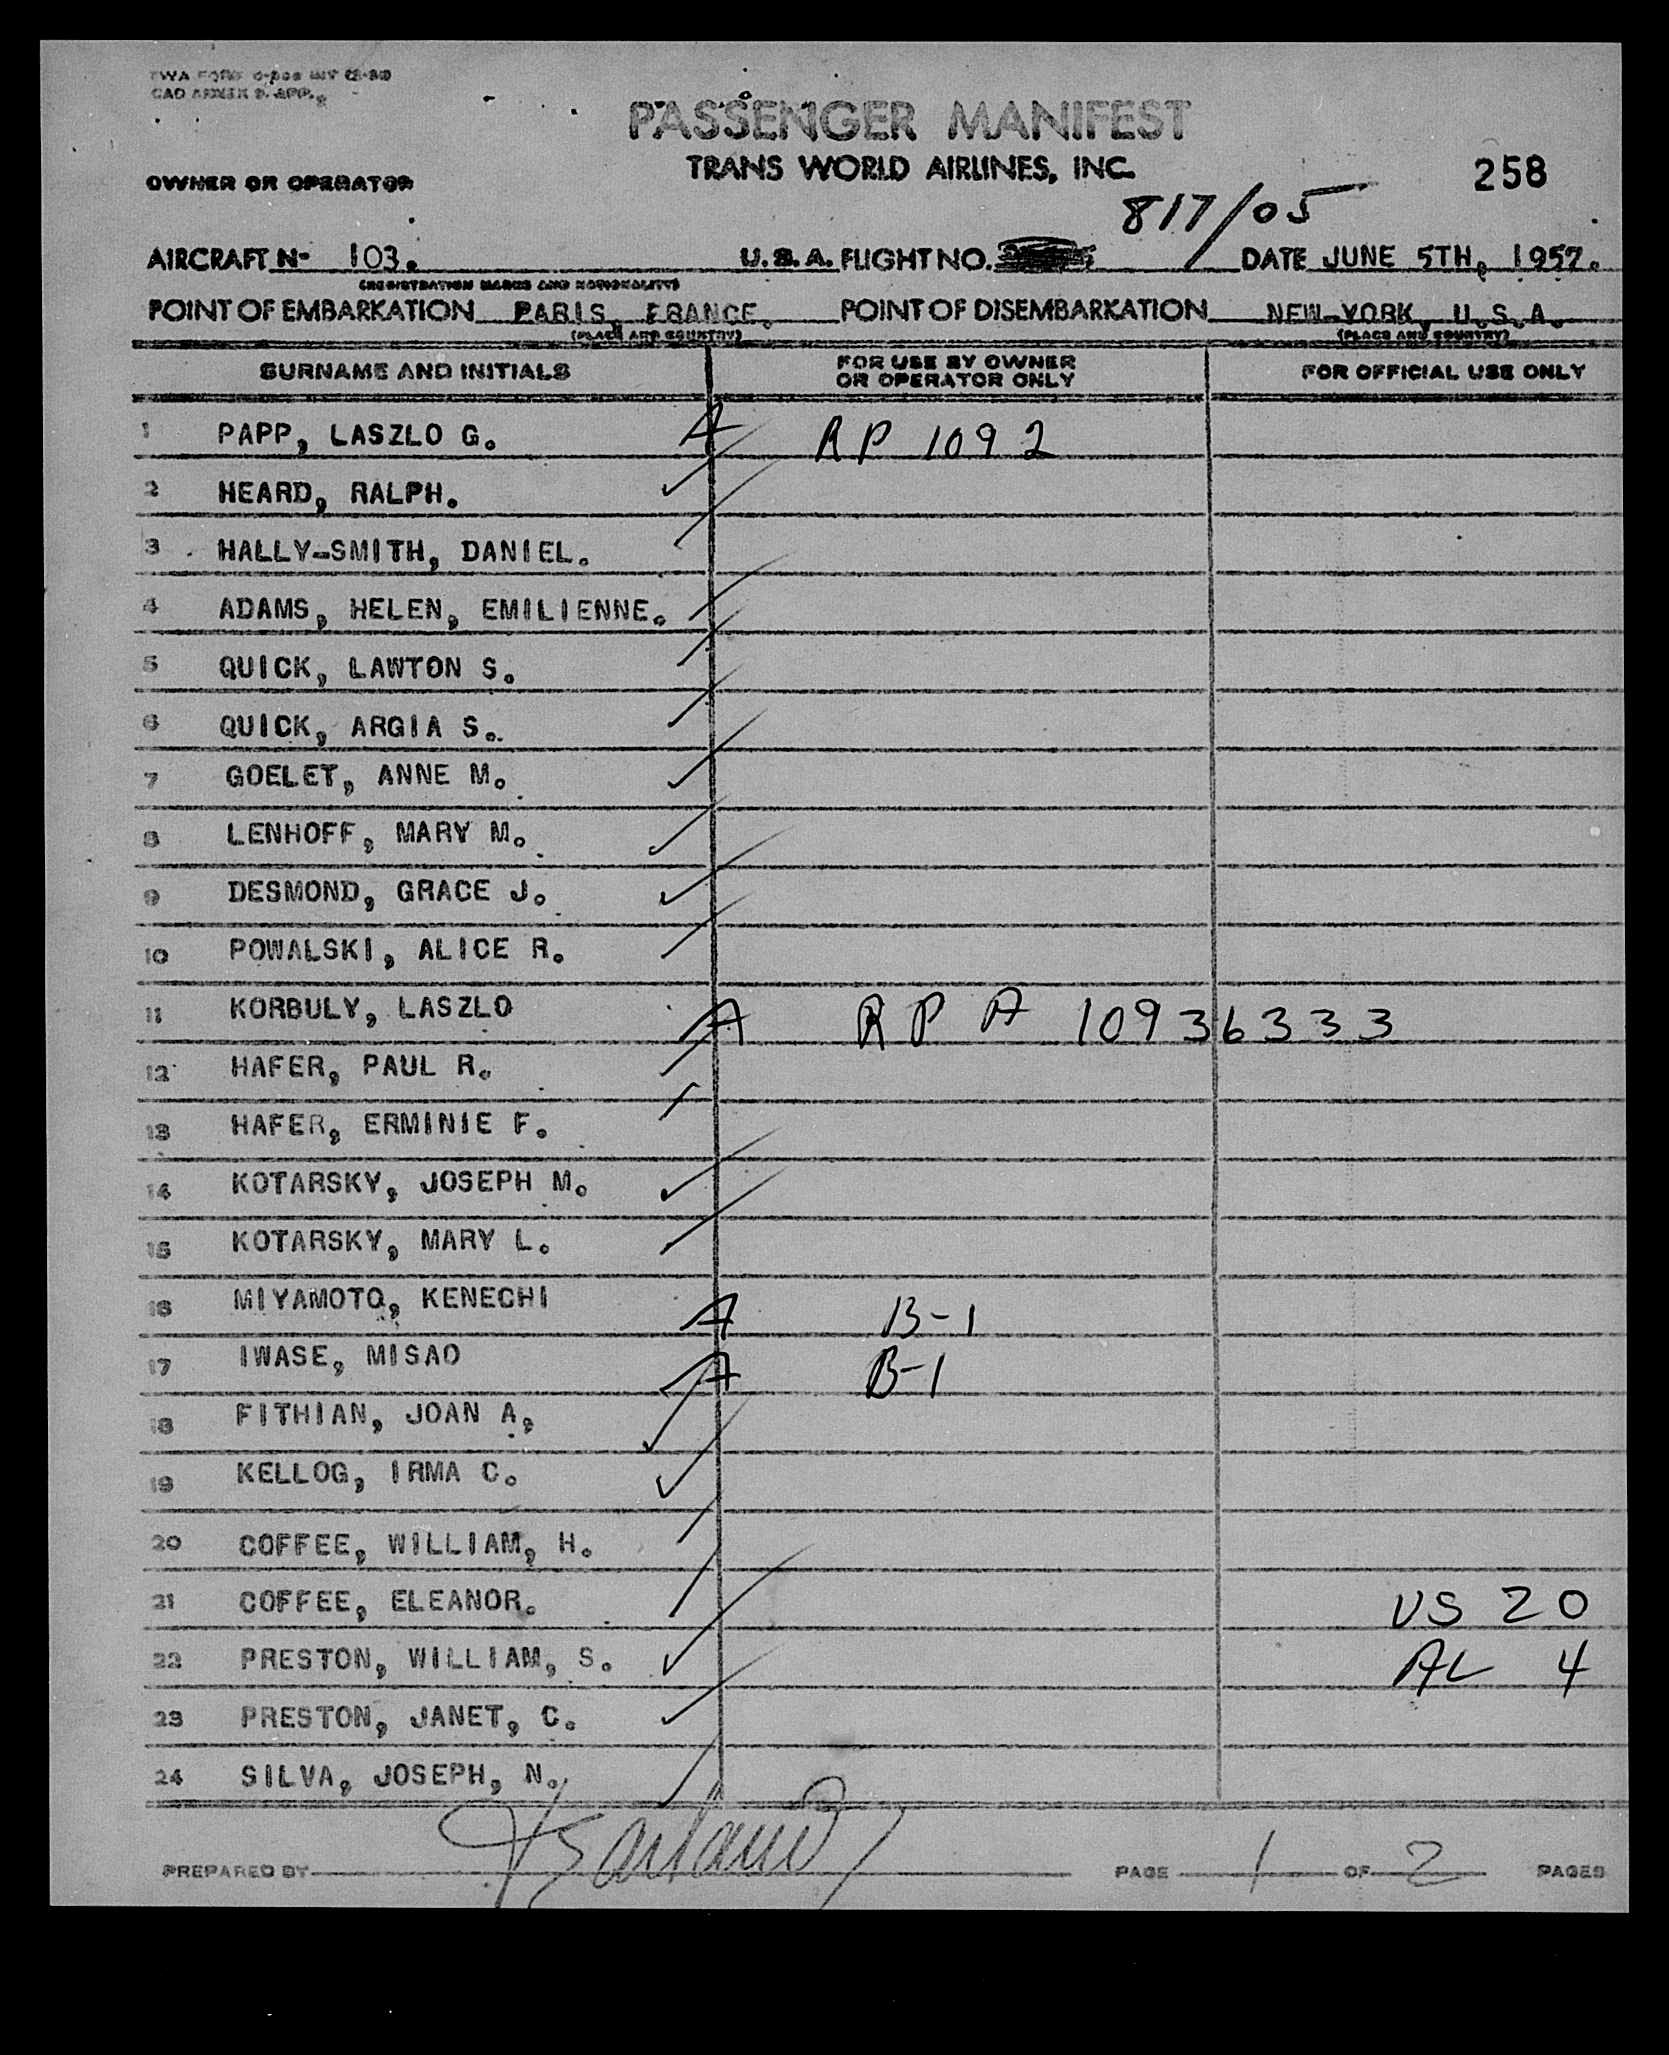 PASSENGER MANIFEST
TRANS WORLD AIRLINES, INC.
258
OWNER OR OPERATOR
817/05
AIRCRAFT Nº 103. U.S.A. FLIGHT NO. DATE JUNE 5TH, 1957.
(REGISTRATION MARKS AND NATIONALITY)
POINT OF EMBARKATION PARIS, FRANCE. POINT OF DISEMBARKATION NEW-YORK, U.S.A.
(PLACE AND COUNTRY) (PLACE AND COUNTRY)
SURNAME AND INITIALS FOR USE BY OWNER OR OPERATOR ONLY FOR OFFICIAL USE ONLY
1 PAPP, LASZLO G. A RP 1092
2 HEARD, RALPH.
3 HALLY-SMITH, DANIEL.
4 ADAMS, HELEN, EMILIENNE.
5 QUICK, LAWTON S.
6 QUICK, ARGIA S.
7 GOELET, ANNE M.
8 LENHOFF, MARY M.
9 DESMOND, GRACE J.
10 POWALSKI, ALICE R.
11 KORBULY, LASZLO A RP A 10936333
12 HAFER, PAUL R.
13 HAFER, ERMINIE F.
14 KOTARSKY, JOSEPH M.
15 KOTARSKY, MARY L.
16 MIYAMOTO, KENECHI A B-1
17 IWASE, MISAO A B-1
18 FITHIAN, JOAN A,
19 KELLOG, IRMA C.
20 COFFEE, WILLIAM, H.
21 COFFEE, ELEANOR. US 20
22 PRESTON, WILLIAM, S. AL 4
23 PRESTON, JANET, C.
24 SILVA, JOSEPH, N.
PREPARED BY PAGE 1 OF 2 PAGES